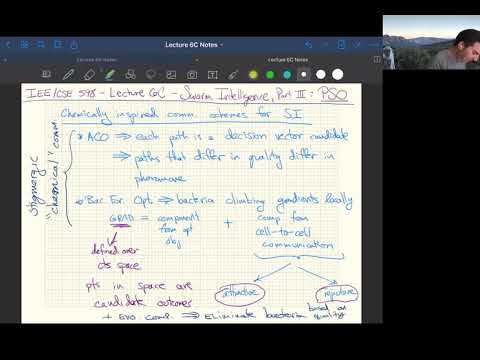 Lecture 6C Notes
Lecture 6C Notes
Lecture 6C Notes
IEE/CSE 598 - Lecture 6C - Swarm Intelligence, Part III: PSO
Chemically inspired comm. schemes for SI
Stigmergic
"chemical" comm
* ACO ⇒ each path is a decision vector candidate
⇒ paths that differ in quality differ in
pheromone
* Bac. For. Opt. ⇒ bacteria climbing gradients locally
GRAD = component from opt obj + comp from cell-to-cell communication
defined over
cts space
pts in space are
candidate outcomes
attractive
repulsive
+ evo comp. ⇒ eliminate bacteria based on quality